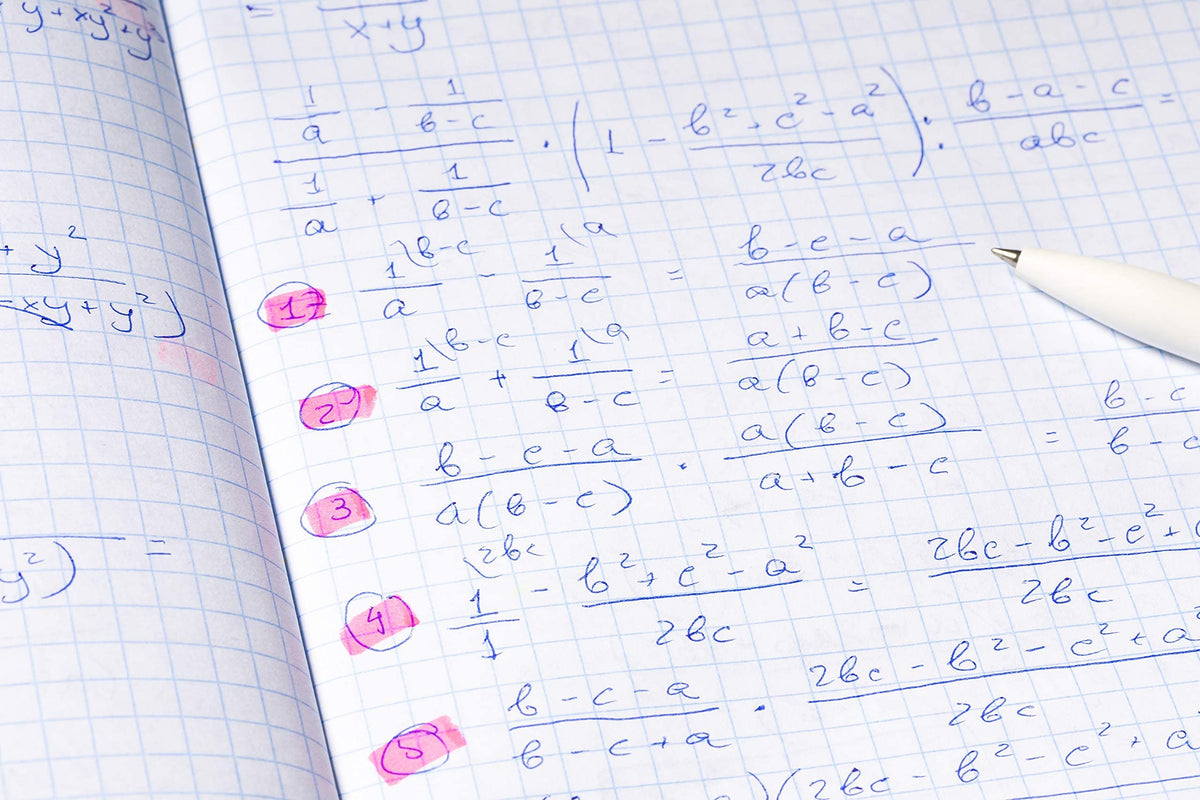 y + xy² + y³
+ y²
- xy + y²)
y²) =
= / (x + y)
(1/a - 1/(b - c)) / (1/a + 1/(b - c)) · (1 - (b² + c² - a²)/(2bc)) : (b - a - c)/(abc) =
1) 1/a \b-c - 1/(b - c) \a = (b - c - a)/(a(b - c))
2) 1/a \b-c + 1/(b - c) \a = (a + b - c)/(a(b - c))
3 (b - c - a)/(a(b - c)) · (a(b - c))/(a + b - c) = (b - c)/(b - c
4 1/1 \2bc - (b² + c² - a²)/(2bc) = (2bc - b² - c² + )/(2bc)
5) (b - c - a)/(b - c + a) · (2bc - b² - c² + a²)/(2bc)
)(2bc - b² - c² + a